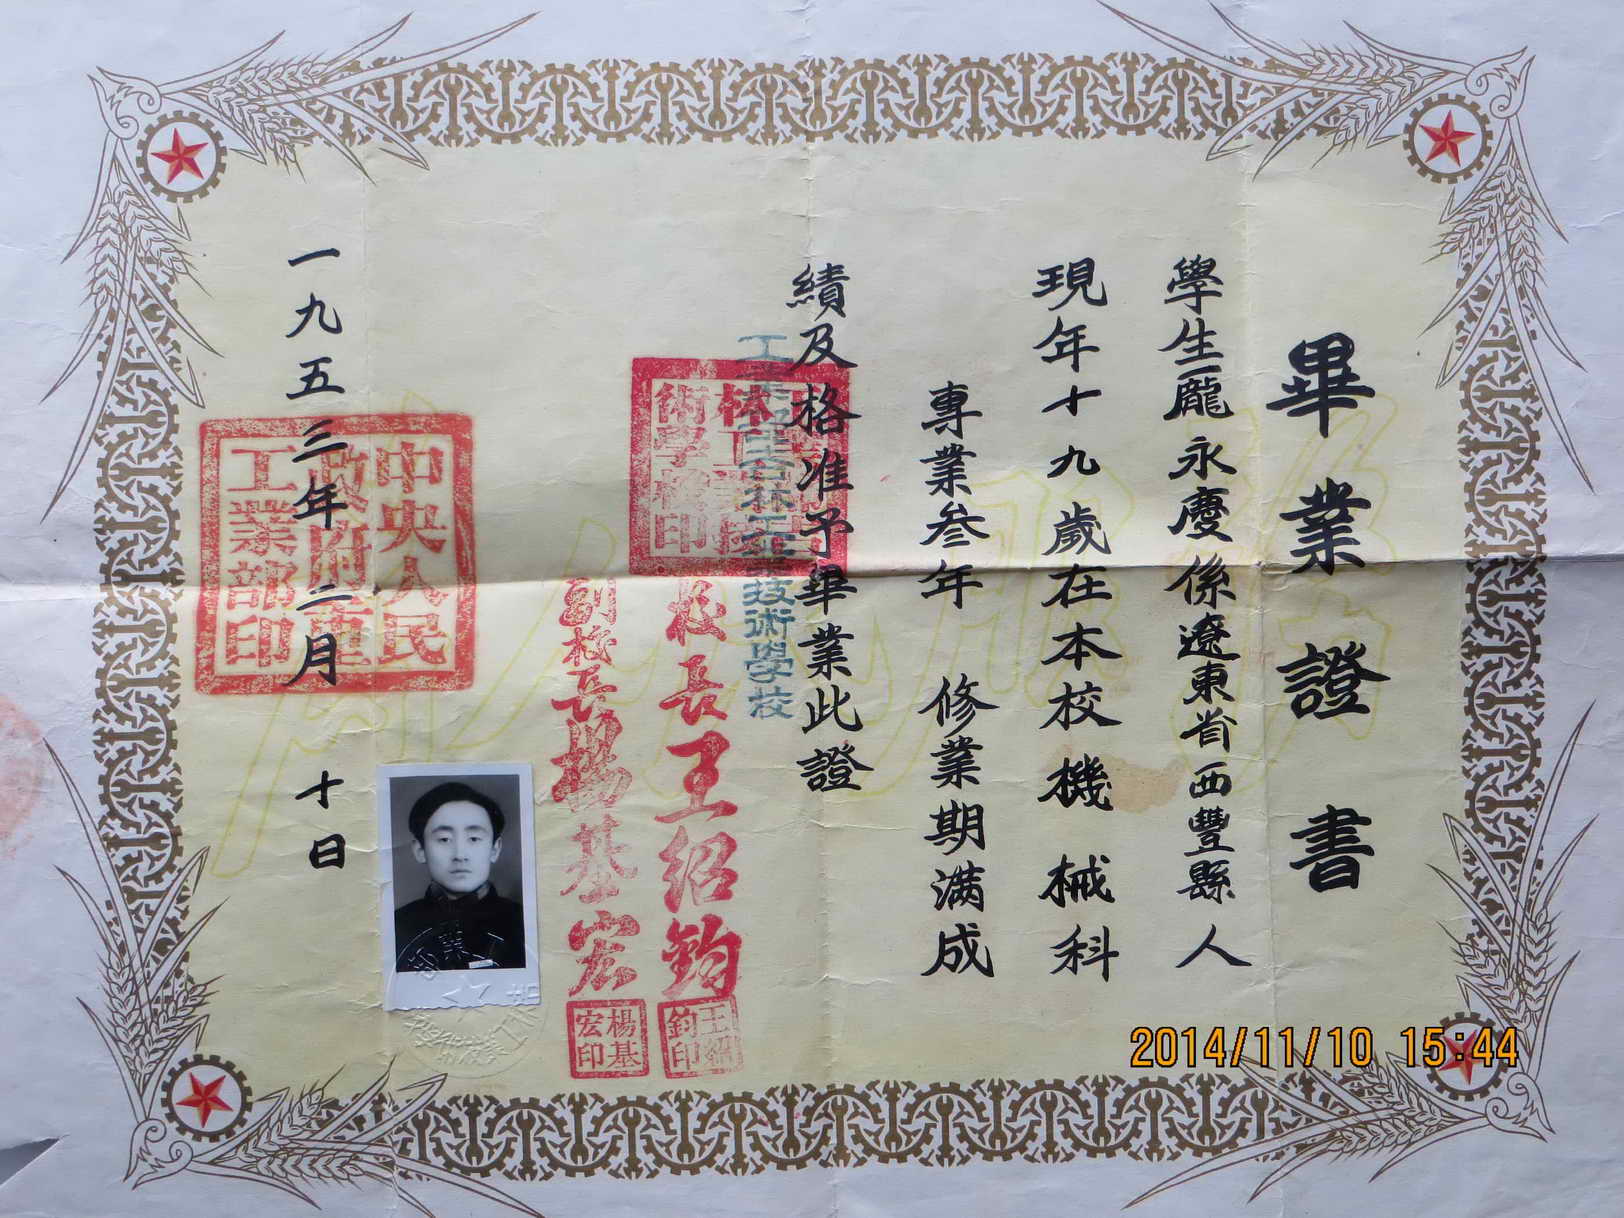 畢業證書
學生龐永慶係遼東省西豐縣人
現年十九歲在本校機械科
專業叁年 修業期满成
績及格准予畢業此證
工業部吉林工業技術學校
校長王紹鈞
王紹鈞印
副校長楊基宏
楊基宏印
一九五三年二月十日
中央人民政府重工業部印
2014/11/10 15:44